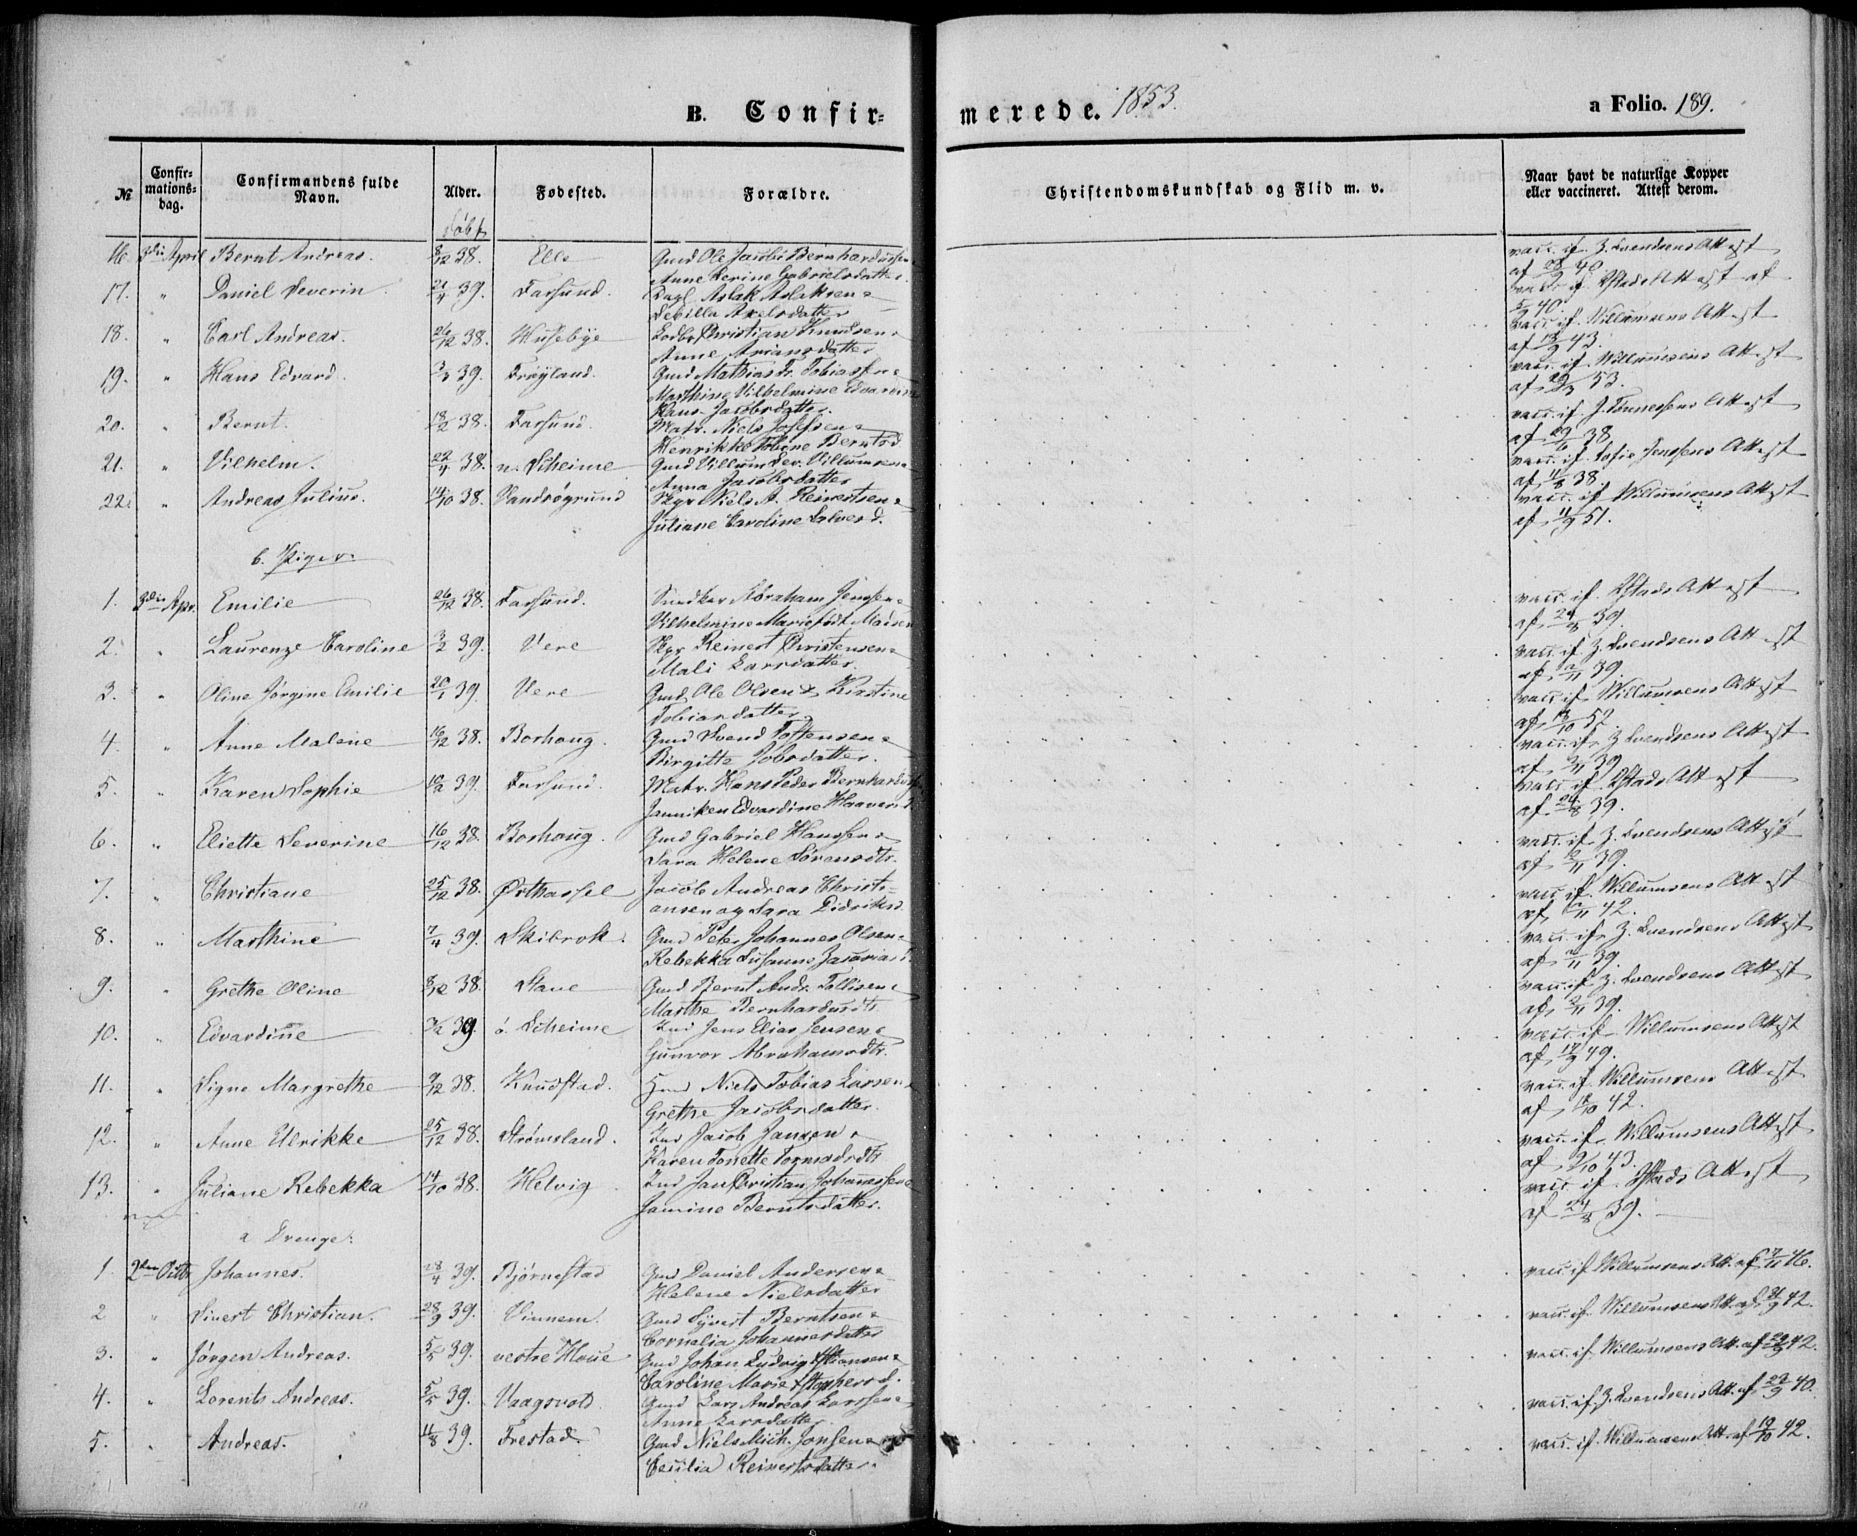 B. Confir-
merede. 1853.
a Folio. 189.
№
Confir-
mations-
dag.
Confirmandens fulde
Navn.
Alder.
Fødested.
Forældre.
Christendomskundskab og Flid m. v.
Naar havt de naturlige Kopper
eller vaccineret. Attest derom.
døbt
16. 3die April Bernt Andreas. 8/12 38. Elle Gmd Ole Jacob Bernhardussen &
Anne Serine Gabrielsdatter.
vacc. if. Z. Svendsens Attest
17. " Daniel Severin 21/4 39. Farsund. Dagl. Aslak Aslaksen &
Sebilla Axelsdatter
vacc. if. Ystads Attest af
18. " Carl Andreas. 26/12 38. Husebye Christian Knudsen &
Anne Ariansdatter
vacc. if. Willumsens Attest
19. " Hans Edvard. 39. Frøyland. Gmd Mathias Fr. Tobiassen &
Marthine Vilhelmine Edvardine
Hans Jacobsdatter.
vacc. if. Willumsens Attest
20. " Bernt. 38. Farsund. Matr. Niels Josefsen &
Henrikke Tobine Berntsd.
vacc. if. J. Tønnesens Attest
21. " Vilhelm. 38. n. Scheime Gmd Villum Sev. Villumsen &
Anna Jacobsdatter
vacc. if. Sofie Jenssens Attest
22. " Andreas Julius. 14/10 38. Vandsøgrund Skpr Niels A. Reinertsen &
Juliane Caroline Salvesd.
vacc. if. Willumsens Attest
af 11/9 51.
b. Piger.
1. 3die Apr. Emilie 26/12 38. Farsund. Snedker Abraham Jenssen &
Vilhelmine Marie født Madsen
vacc. if. Ystads Attest
af 24/8 39.
2. " Laurenze Caroline 3/2 39. Vere Skpr Reinert Christensen &
Mali Larsdatter.
vacc. if. Z. Svendsens Attest
af 2/11 39.
3. " Oline Jørgine Emilie 20/1 39. Vere Gmd. Ole Olsen & Kirstine
Tobiasdatter
vacc. if. Willumsens Attest
4. " Anne Malene 16/12 38. Borhaug. Gmd Svend Toffensen &
Birgitte Jobsdatter.
vacc. if. Z. Svendsens Attest
af 2/11 39.
5. " Karen Sophie 39. Farsund. Matr. Hans Peder Bernhardussen
Janniken Edvardine
vacc. if. Ystads Attest
af 24/8 39.
6. " Eliette Severine 16/12 38. Borhaug. Gmd Gabriel Hanssen &
Sara Helene Sørensdtr.
vacc. if. Z. Svendsens Attest
af 2/11 39.
7. " Christiane 25/12 38. Østhassel Jacob Andreas Christi-
ansen og Sara Didriksd.
vacc. if. Willumsens Attest
8. " Marthine 7/4 39. Skibrok. Gmd Peter Johannes Olsen &
Rebekka Susanne
vacc. if. Z. Svendsens Attest
af 2/11 39
9. " Grethe Oline 8/12 38. Stave Gmd Bernt Andr. Tollisen &
Marthe Bernhardusdtr.
vacc. if. Z. Svendsens Attest
af 2/11 39.
10. " Edvardine 39 ø. Scheime Ind Jens Elias Jensen &
Gunvor Abrahamsdtr.
vacc. if. Willumsens Attest
11. " Signe Margrethe 9/12 38. Knudstad. Niels Tobias Larsen &
Grethe Jacobsdatter.
vacc. if. Willumsens Attest
12. " Anne Ulrikke 25/12 38. Strømsland. Ind Jacob Jansen &
Karen Tonette Tormodsdtr
vacc. if. Willumsens Attest
13. " Juliane Rebekka 14/10 38. Helvig Ind Jan Christian Johanssen &
Jamine Berntsdatter.
vacc. if. Ystads Attest
af 24/8 39.
a Drenge:
1. 2den Octbr Johannes. 28/4 39. Bjørnestad Gmd Daniel Andersen &
Helene Nielsdatter
vacc. if. Willumsens Att. af 7/11 46.
2 " Sivert Christian. 28/9 39. Vinnem. Gmd Syvert Berntsen &
Cornelia Johannesdatter
vacc. if. Willumsens Att. af 21/9 42.
3. " Jørgen Andreas. 5/5 39. vestre Houe Gmd Johan Ludvig &
Caroline Marie
vacc. if. Willumsens Att. af 42.
4. " Lorents Andreas. 5/5 39. Vaagsvold. Gmd Lars Andreas Larssen &
Anne Larsdatter.
vacc. if. Z. Svendsens Att. af 40.
5. " Andreas. 11/8 39. Frestad. Gmd Niels Mich. Jonsen &
Cecilia Reinertsdatter.
vacc. if. Willumsens Att. af 19/10 42.